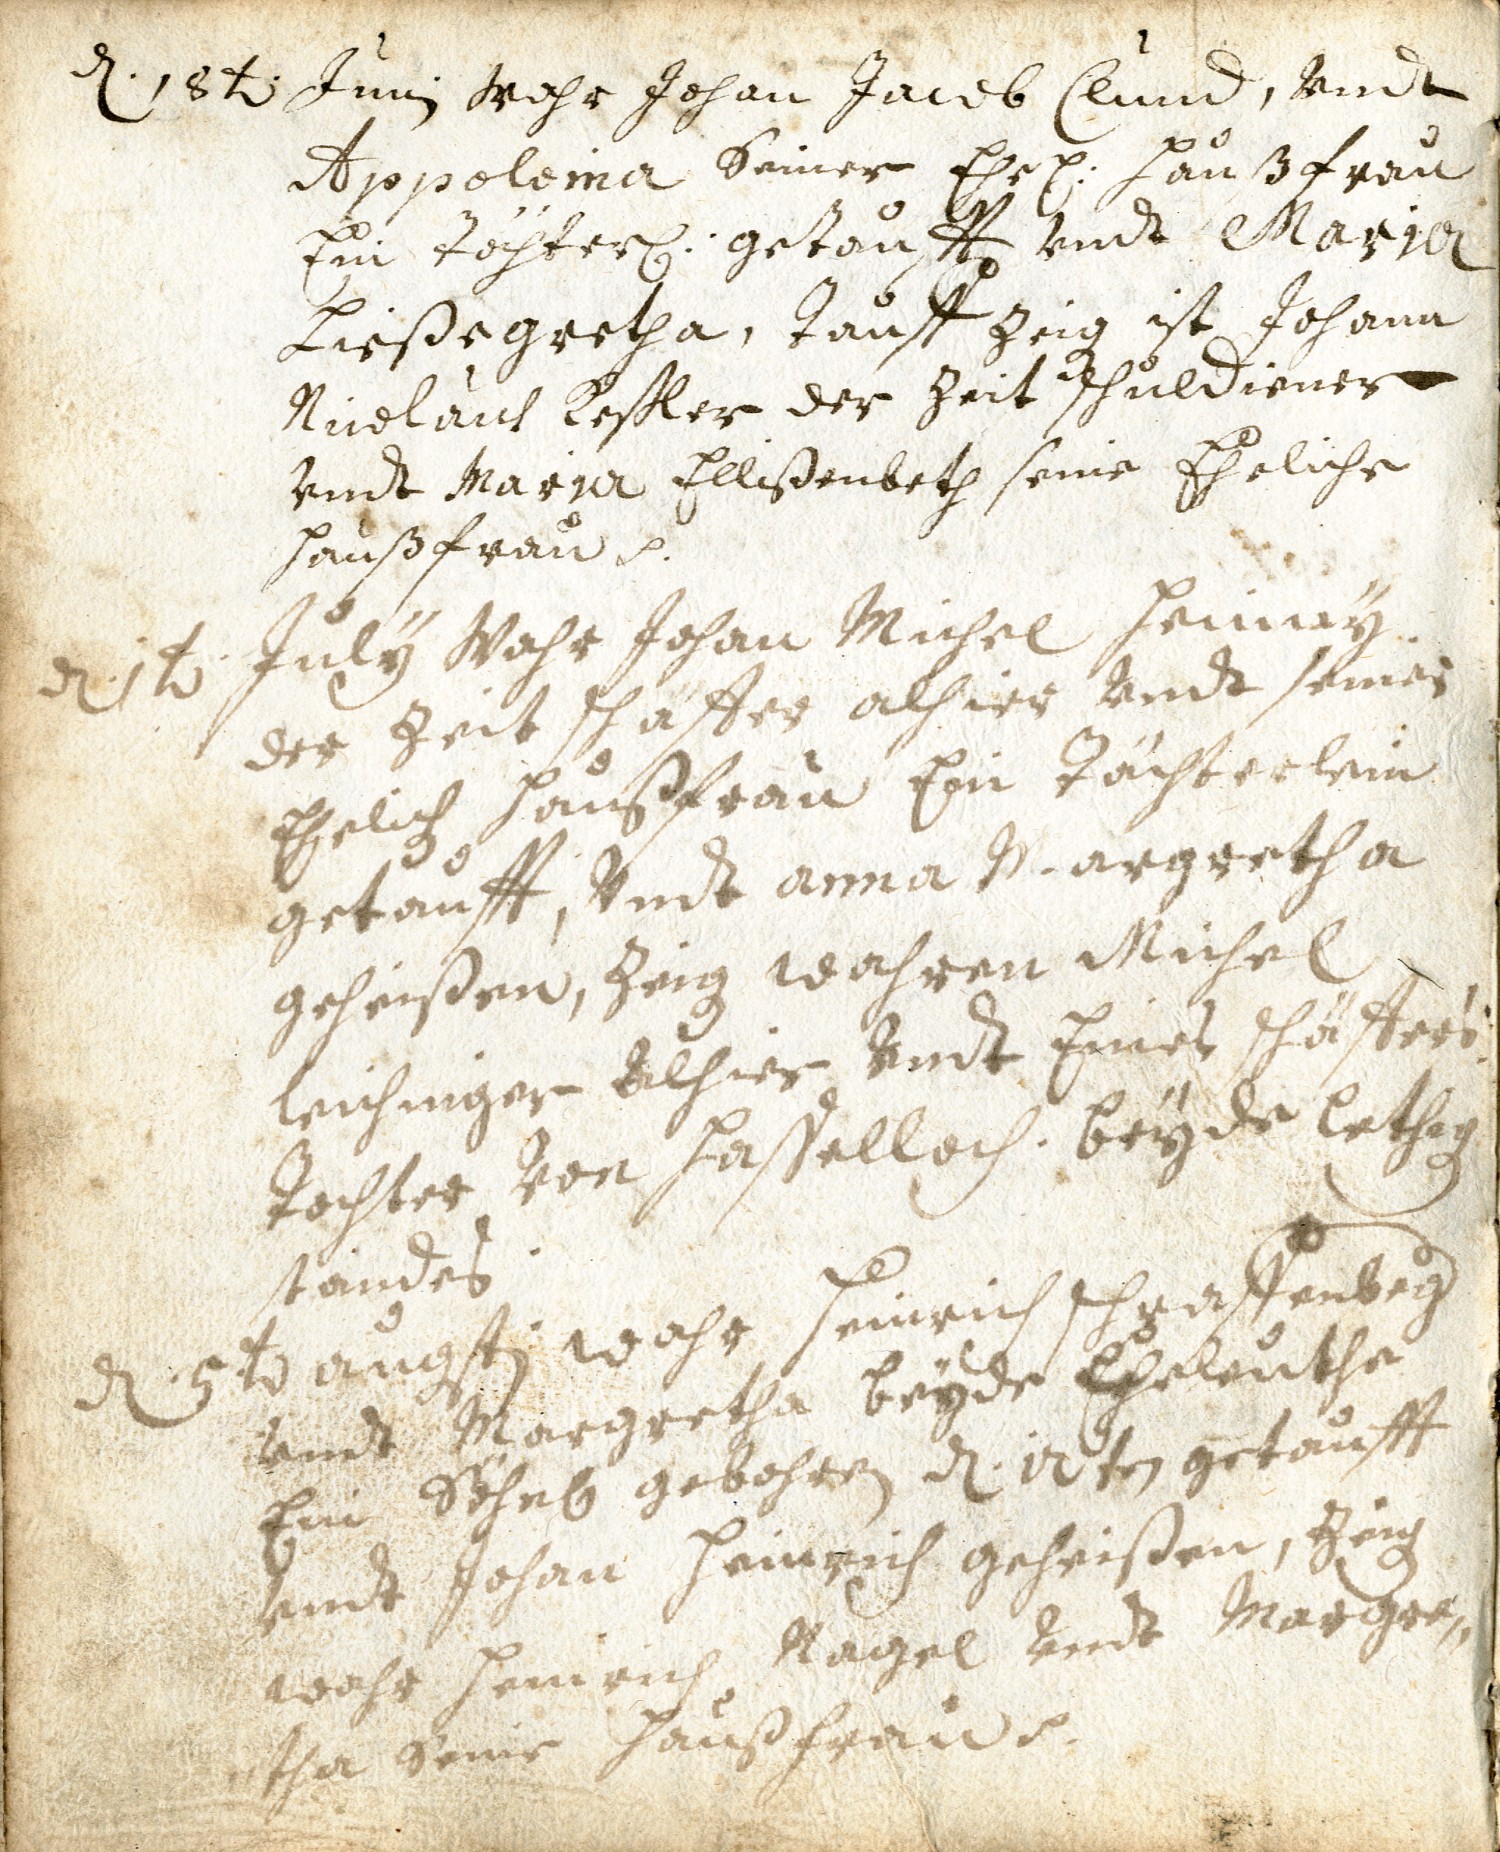 d. 18t. Junij Wahr Johan Jacob Clund, Vndt
Appolonia Seiner Ehel. Haußfrau
Ein Töchterl. getaufft Vndt Maria
Ließegretha, Tauff Zeig ist Johann
Niclaus Keßler der Zeit Schuldiener
Vndt Maria Ellißenbeth seine Eheliche
Haußfrau
d. 1t. July Wahr Johan Michel
der Zeit schäffer alhier Vndt seiner
Ehelich Haußfrau Ein Töchterlein
getaufft, Vndt anna Margretha
geheißen, Zeig wahren Michel
leichniger alhier Vndt Eines schäffers
Tochter Von Hasselloch. beyde lethig
standes
d. 5t augsti wahr Heinrich
Vndt Margretha beyde Eheleuthe
Ein Söhnl gebohren d. 12ten getaufft
Vndt Johan Heinrich geheißen, Zeig
wahr Heinrich Nagel Vndt Margre„
tha Seine Haußfrau